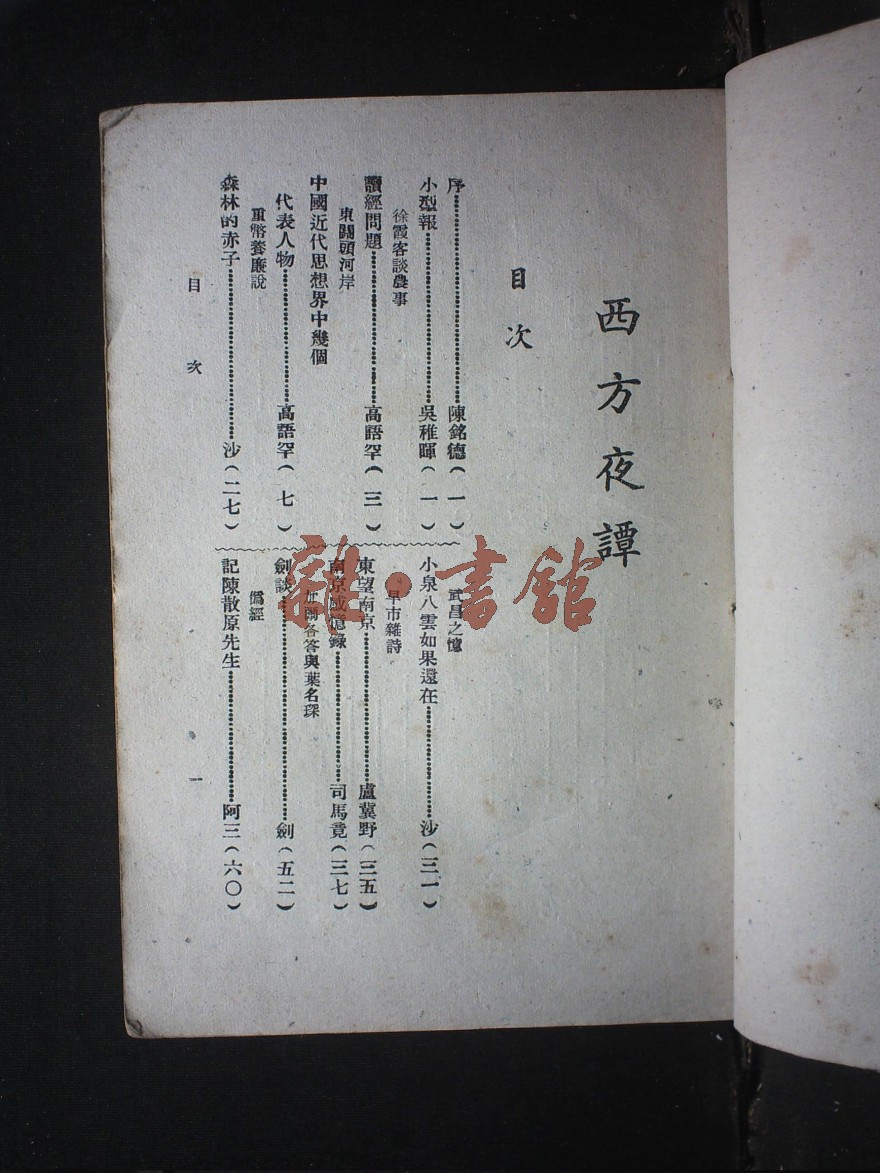 西方夜譚
目次
序……陳銘德(一)
小型報……吳稚暉(一)
徐霞客談農事
讀經問題……高語罕(三)
東關頭河岸
中國近代思想界中幾個
代表人物……高語罕(七)
重幣養廉說
森林的赤子……沙(二七)
武昌之憶
小泉八雲如果還在……沙(三一)
早市雜詩
東望南京……盧冀野(三五)
南京感憶錄……司馬竟(三七)
各答與葉名琛
劍談……劍(五二)
僞經
記陳散原先生……阿三(六〇)
目次 一
雜·書館